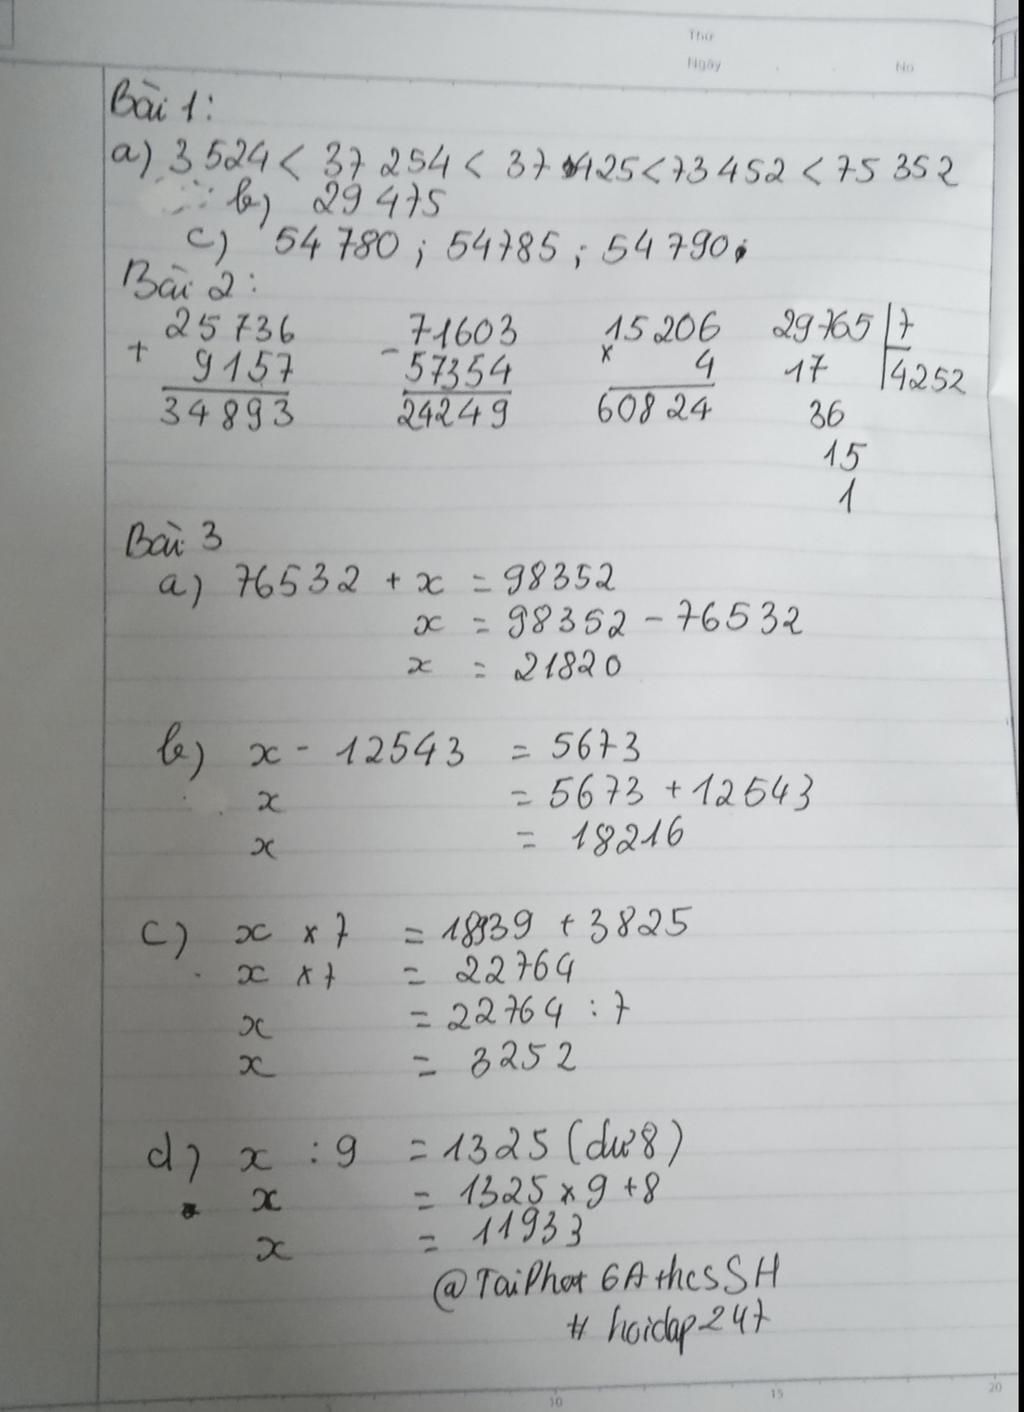 Thứ
Ngày . . No
Bài 1:
a) 3 524 < 37 254 < 37 425 < 73 452 < 75 352
b) 29 475
c) 54 780 ; 54785 ; 54 790
Bài 2:
25 736 71603 15 206 29765 | 7
+ 9157 - 57354 x 4 17 4252
34893 24249 60824 36
15
1
Bài 3
a) 76532 + x = 98352
x = 98352 - 76532
x = 21820
b) x - 12543 = 5673
x = 5673 + 12543
x = 18216
c) x x 7 = 18939 + 3825
x x 7 = 22764
x = 22764 : 7
x = 3252
d) x : 9 = 1325 (dư 8)
x = 1325 x 9 + 8
x = 11933
@TaiPhat 6A thcs SH
# hoidap247
10 15 20